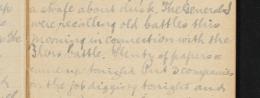 a strafe about dusk. The General &
were recalling old battles this
morning in connection with the
battle. Plenty of papers
coming tonight. Put 2 companies
on the job digging tonight and